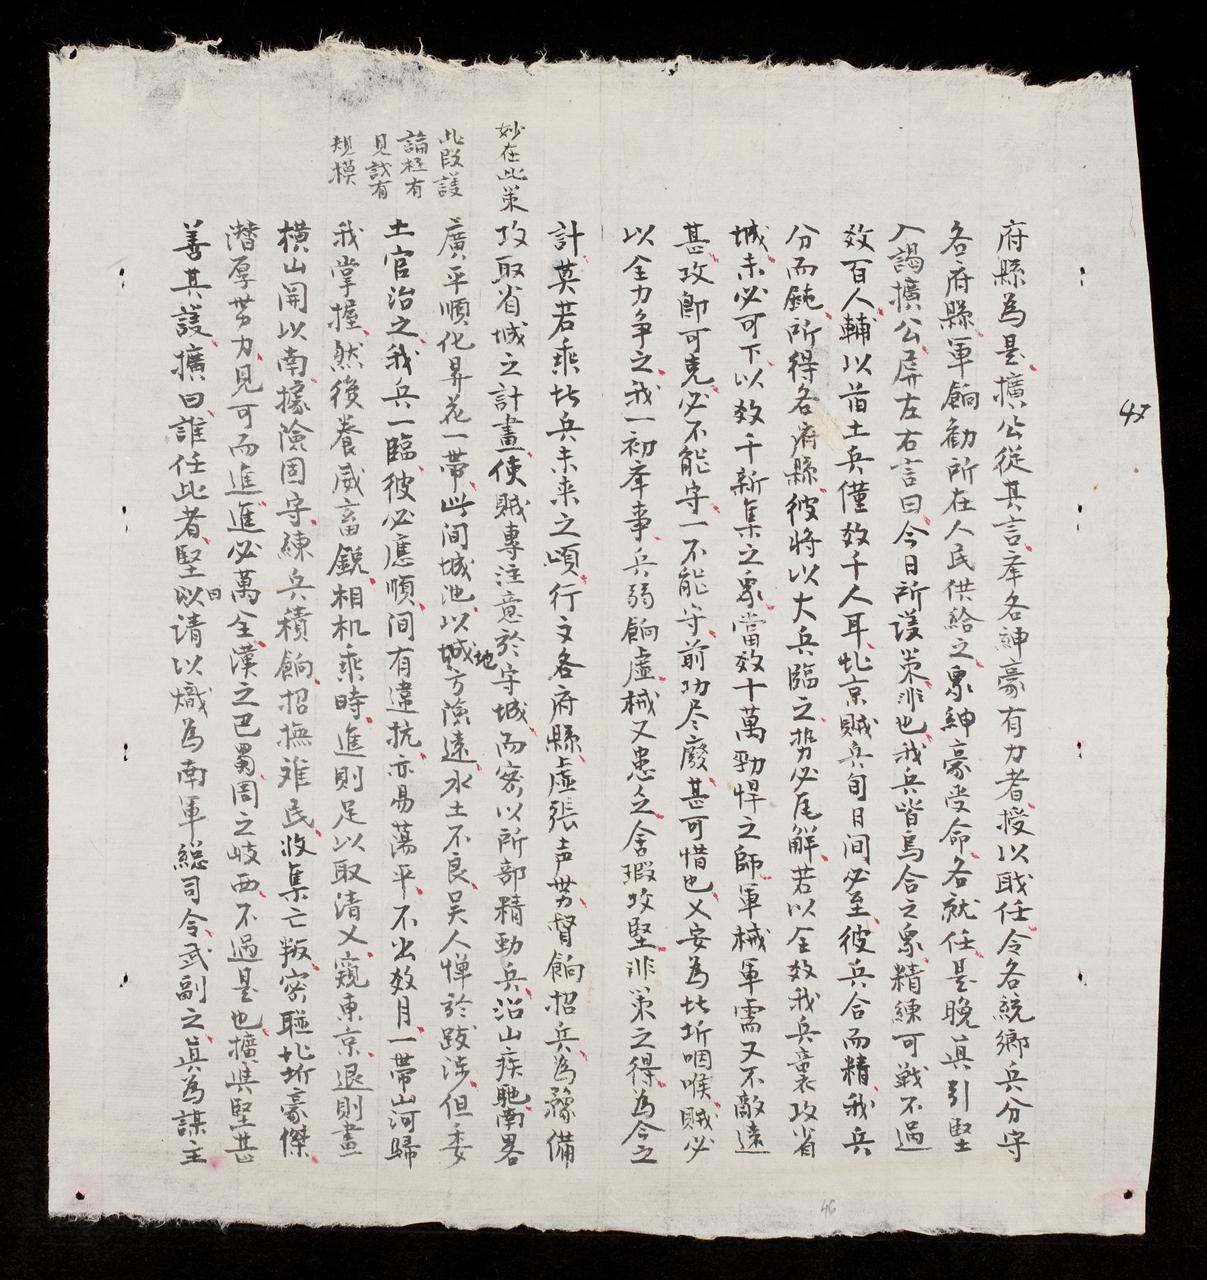 府縣為是擴公從其言牽各紳豪有力者授以職任令各統鄉兵分守
各府縣軍餉勸所在人民供給之衆紳豪受命各就任是晚真引堅
入謁擴公屏左右言曰今日所議策非也我兵皆烏合之衆精練可戰不過
效百人輔以苗土兵僅效千人耳北京賊兵旬日間必至彼兵合而精我兵
分而鈍所得各府縣彼將以大兵臨之势必尾解若以全效我兵襲攻省
城未必可下以效千新集之衆當效十萬勁悍之師軍械軍需又不敵遠
甚攻即可克必不能守一不能守前功尽廢甚可惜也乂安為北圻咽喉賊必
以全力争之我一初牽事兵弱餉虛械又患乏舍瑕攻堅非策之得為今之
計莫若乘北兵未来之頃行文各府縣虛張声势督餉招兵為豫備
妙在此策
攻取省城之計畫使賊專注意於守城而密以所部精勁兵沿山疾馳南畧
廣平順化昇花一帶此間城池以城地方險遠水土不良吴人憚於跋涉但委
此段議
論極有
見識有
規模
土官治之我兵一臨彼必應順間有違抗亦易蕩平不出效月一帶山河歸
我掌握然後養威畜銳相机乘時進則足以取清乂窺東京退則畫
橫山開以南據險固守練兵積餉招撫难民收集亡叛密聯北圻豪傑
潛厚势力見可而進進必萬全漢之巴蜀周之岐西不過是也擴與堅甚
善其議擴曰誰任此者堅曰以请以熾為南軍総司令武副之真為謀主
47
46